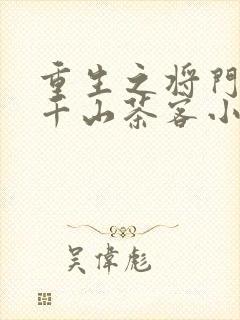 重生之将門
千山茶客小
吴偉彪